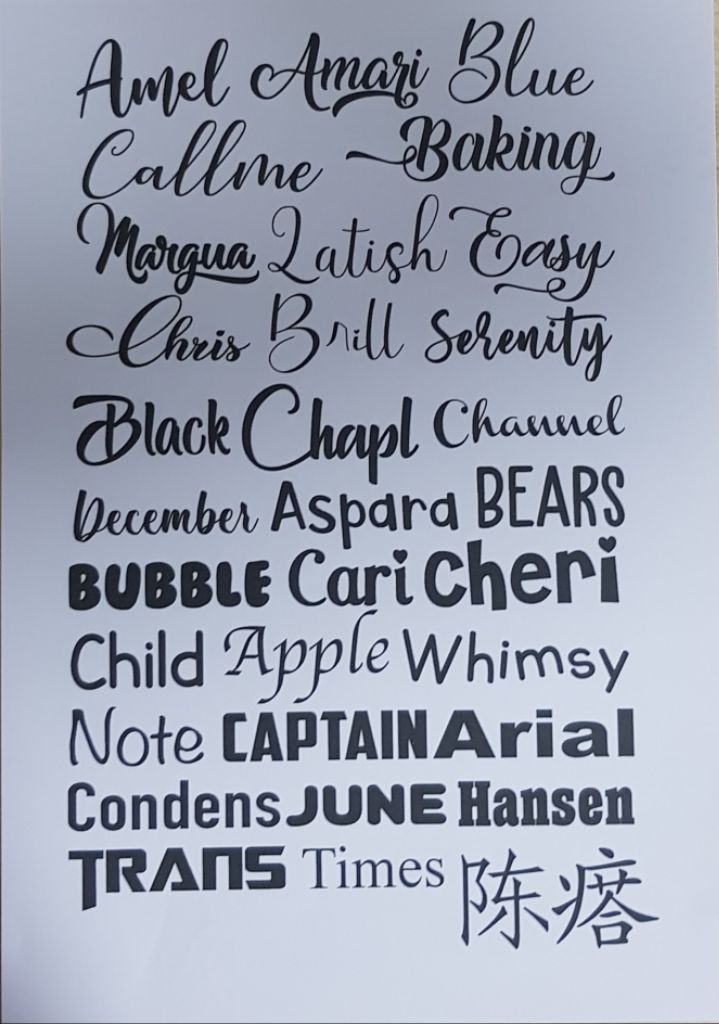 Amel Amari Blue
Callme Baking
Margua Latish Easy
Chris Brill Serenity
Black Chapl Channel
December Aspara BEARS
BUBBLE Cari Cheri
Child Apple Whimsy
Note CAPTAIN Arial
Condens JUNE Hansen
TRANS Times 陈瘩